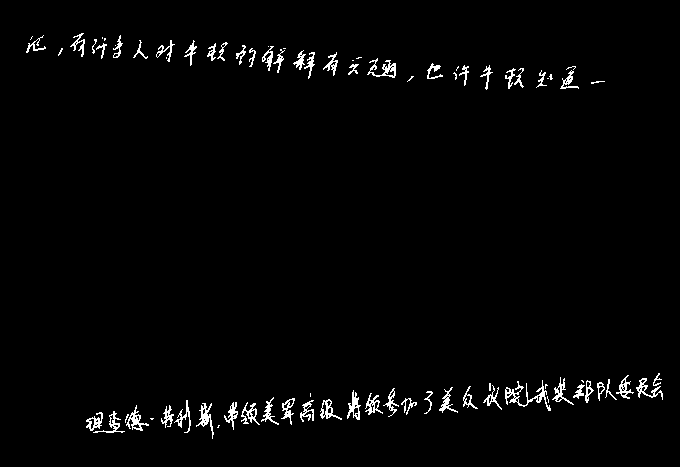 论，有许多人对牛顿的解释有兴趣，也许牛顿知道一
理查德·劳利斯，带领美军高级将领参加了美众议院武装部队委员会